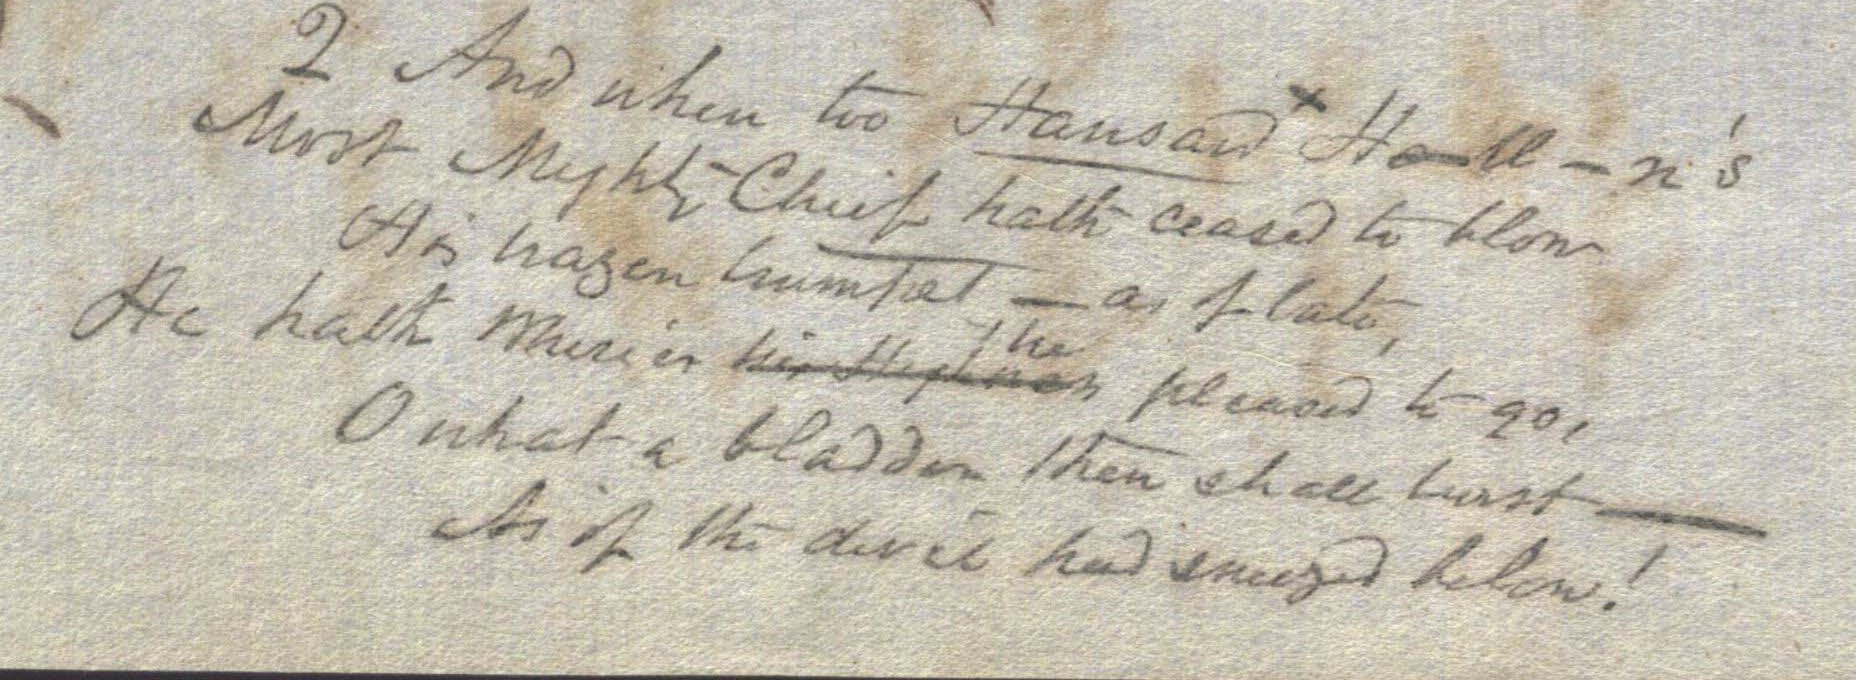 2 And when too Hansard × H—ll—n's
Most Mighty Chief hath ceased to blow
His brazen trumpet — as of late,
the
He hath Where'er his Highness pleased to go,
O what a bladder then shall burst —
As if the devil had sneezed below!